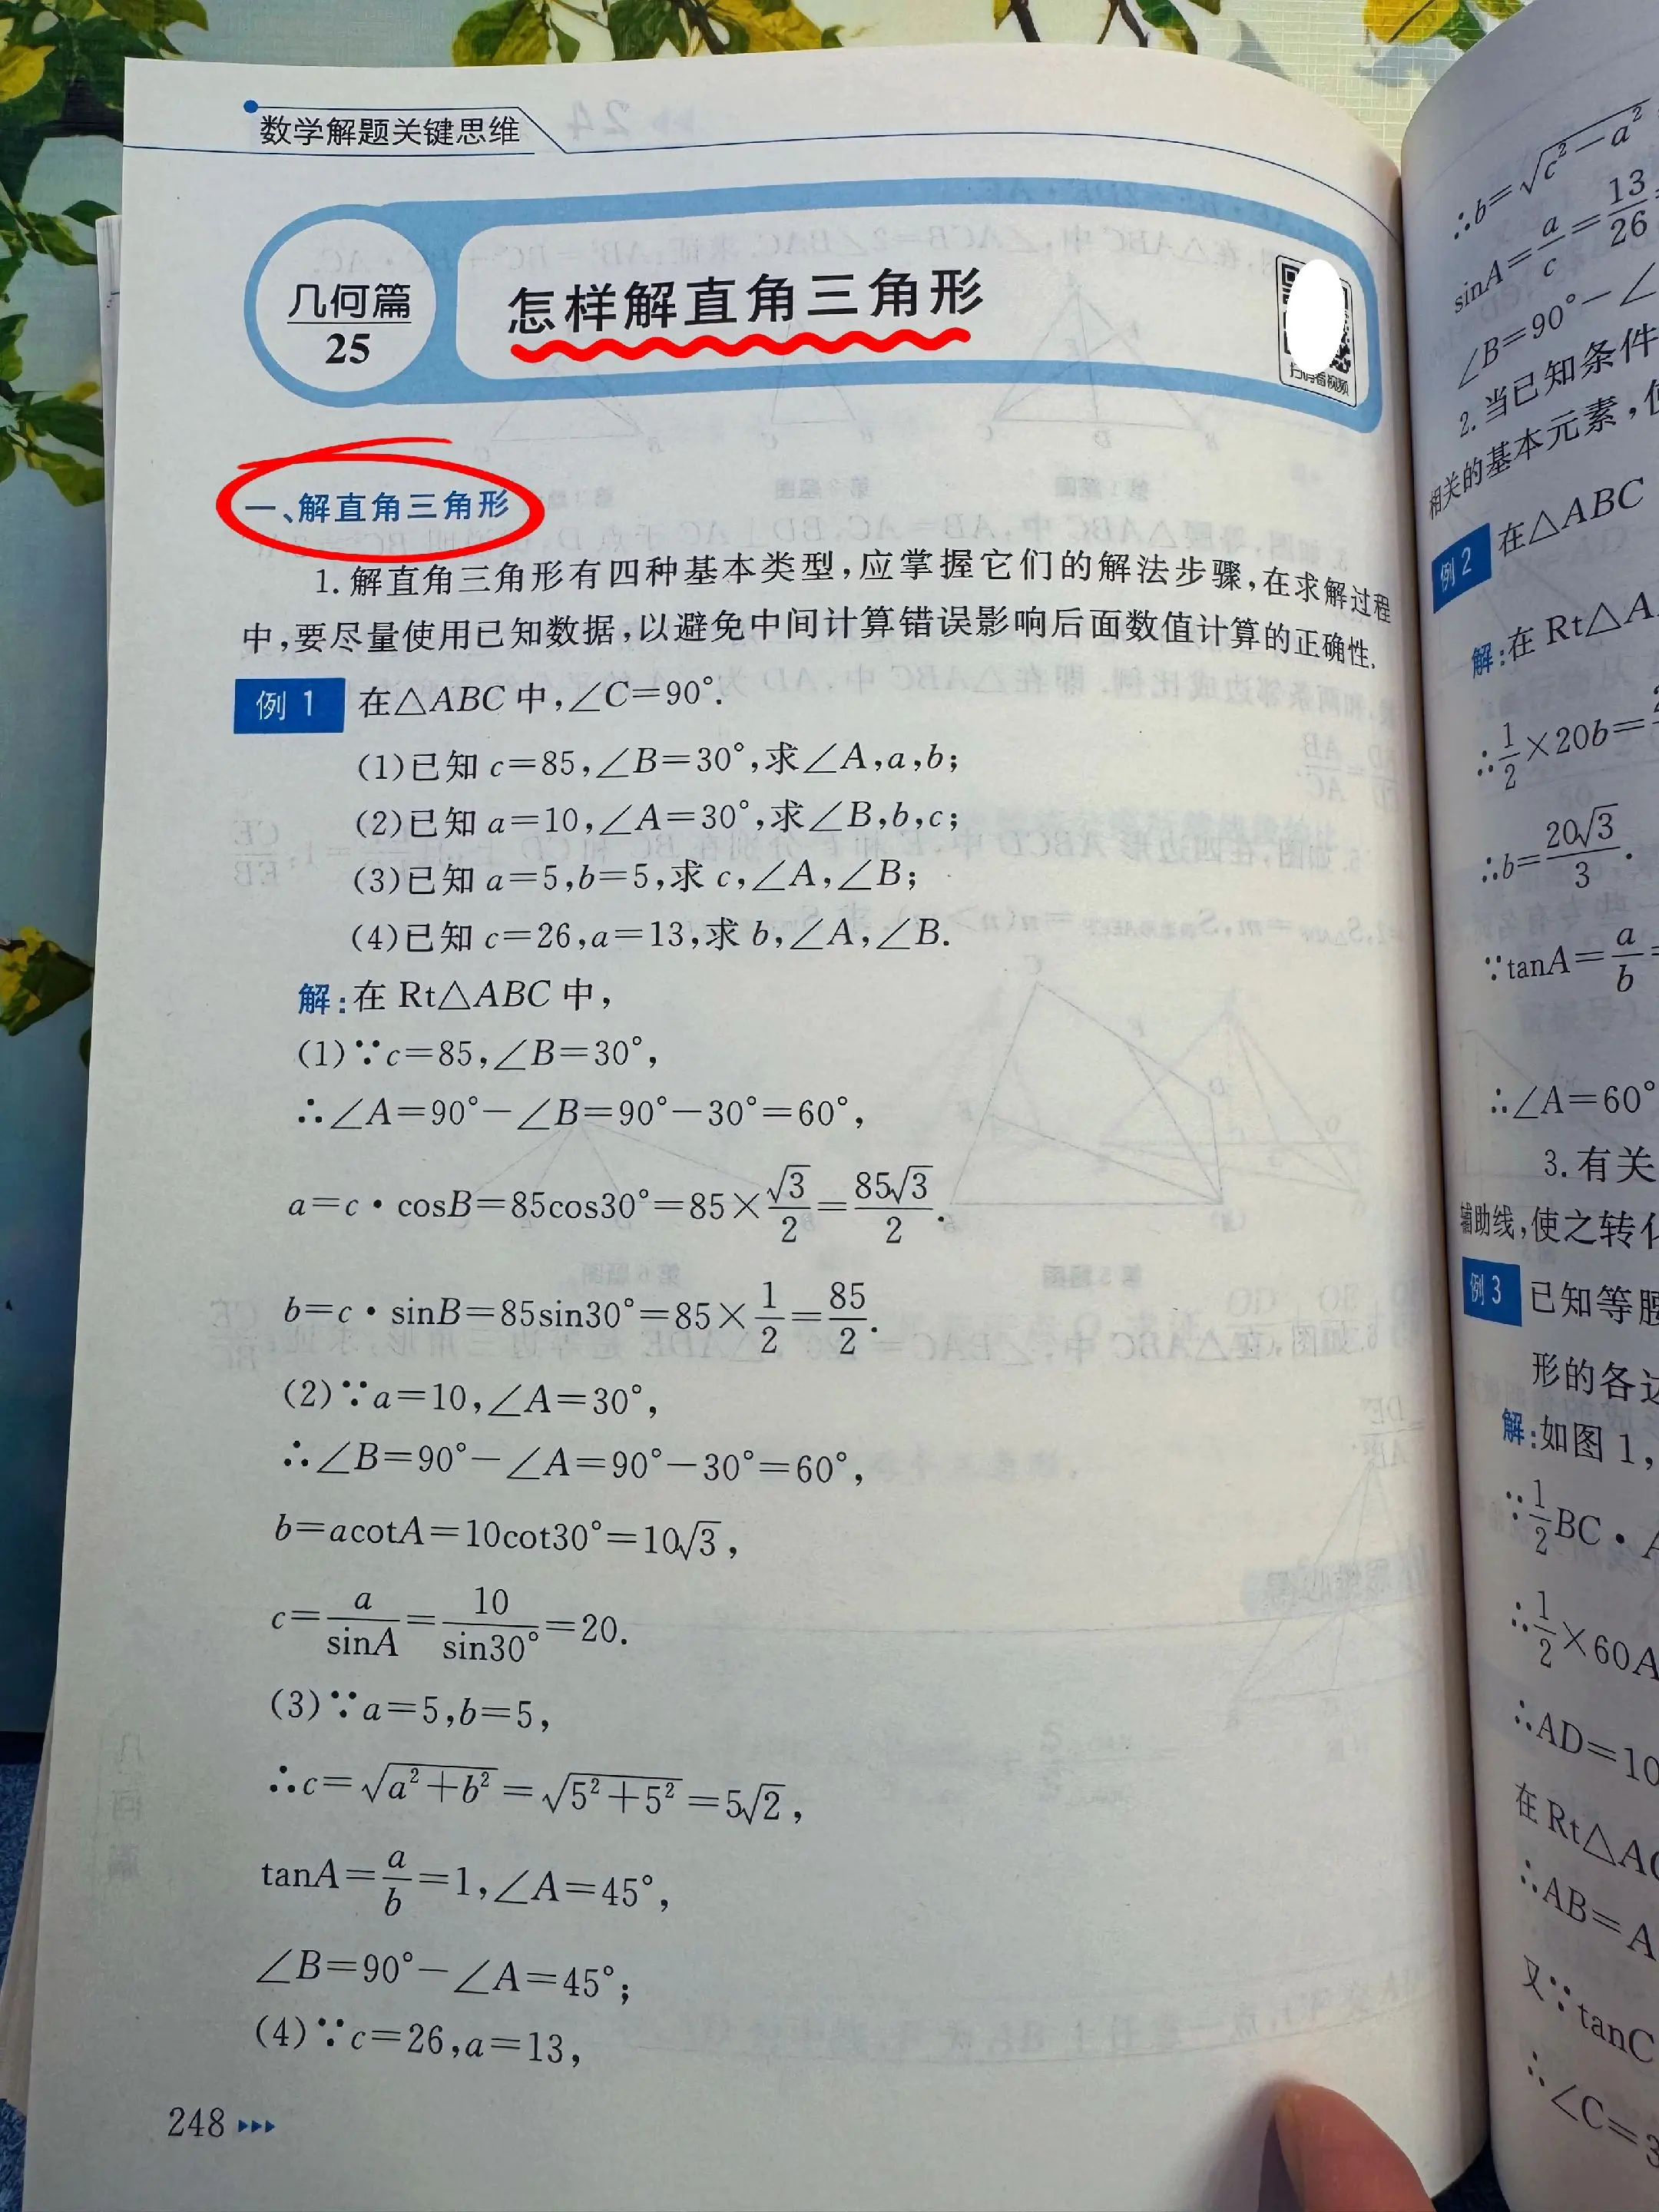 数学解题关键思维
几何篇
25
怎样解直角三角形
扫码看视频
一、解直角三角形
1.解直角三角形有四种基本类型,应掌握它们的解法步骤,在求解过程
中,要尽量使用已知数据,以避免中间计算错误影响后面数值计算的正确性.
例 1 在△ABC 中,∠C=90°.
(1)已知 c=85,∠B=30°,求∠A,a,b;
(2)已知 a=10,∠A=30°,求∠B,b,c;
(3)已知 a=5,b=5,求 c,∠A,∠B;
(4)已知 c=26,a=13,求 b,∠A,∠B.
解:在 Rt△ABC 中,
(1)∵c=85,∠B=30°,
∴∠A=90°-∠B=90°-30°=60°,
a=c·cosB=85cos30°=85×√3/2=85√3/2.
b=c·sinB=85sin30°=85×1/2=85/2.
(2)∵a=10,∠A=30°,
∴∠B=90°-∠A=90°-30°=60°,
b=acotA=10cot30°=10√3,
c=a/sinA=10/sin30°=20.
(3)∵a=5,b=5,
∴c=√(a²+b²)=√(5²+5²)=5√2,
tanA=a/b=1,∠A=45°,
∠B=90°-∠A=45°;
(4)∵c=26,a=13,
248
∴b=√(c²-a²)
sinA=a/c=13/26
∠B=90°-∠
2.当已知条件
相关的基本元素,
例 2 在△ABC
解:在 Rt△A
∴1/2×20b=
∴b=20√3/3.
∵tanA=a/b=
∴∠A=60°
3.有关
辅助线,使之转
例 3 已知等腰
形的各
解:如图 1,
∵1/2BC·
∴1/2×60A
∴AD=10
在 Rt△A
∴AB=A
又∵tanC
∴∠C=3